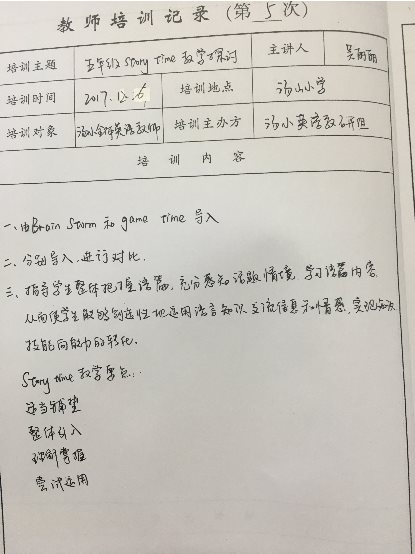 教师培训记录（第 5 次）
培训主题 五年级 Story time 教学探讨 主讲人 吴丽丽
培训时间 2017.12.6 培训地点 汤山小学
培训对象 汤小全体英语教师 培训主办方 汤小英语教研组
培 训 内 容
一、由Brain Storm 和 game time 导入
二、分别导入，进行对比.
三、指导学生整体把握语篇，充分感知话题情境，学习语篇内容
从而使学生能够创造性地运用语言知识交流信息和情感，实现知识
技能向能力的转化.
Story time 教学要点:
适当铺垫
整体引入
掌握
尝试运用